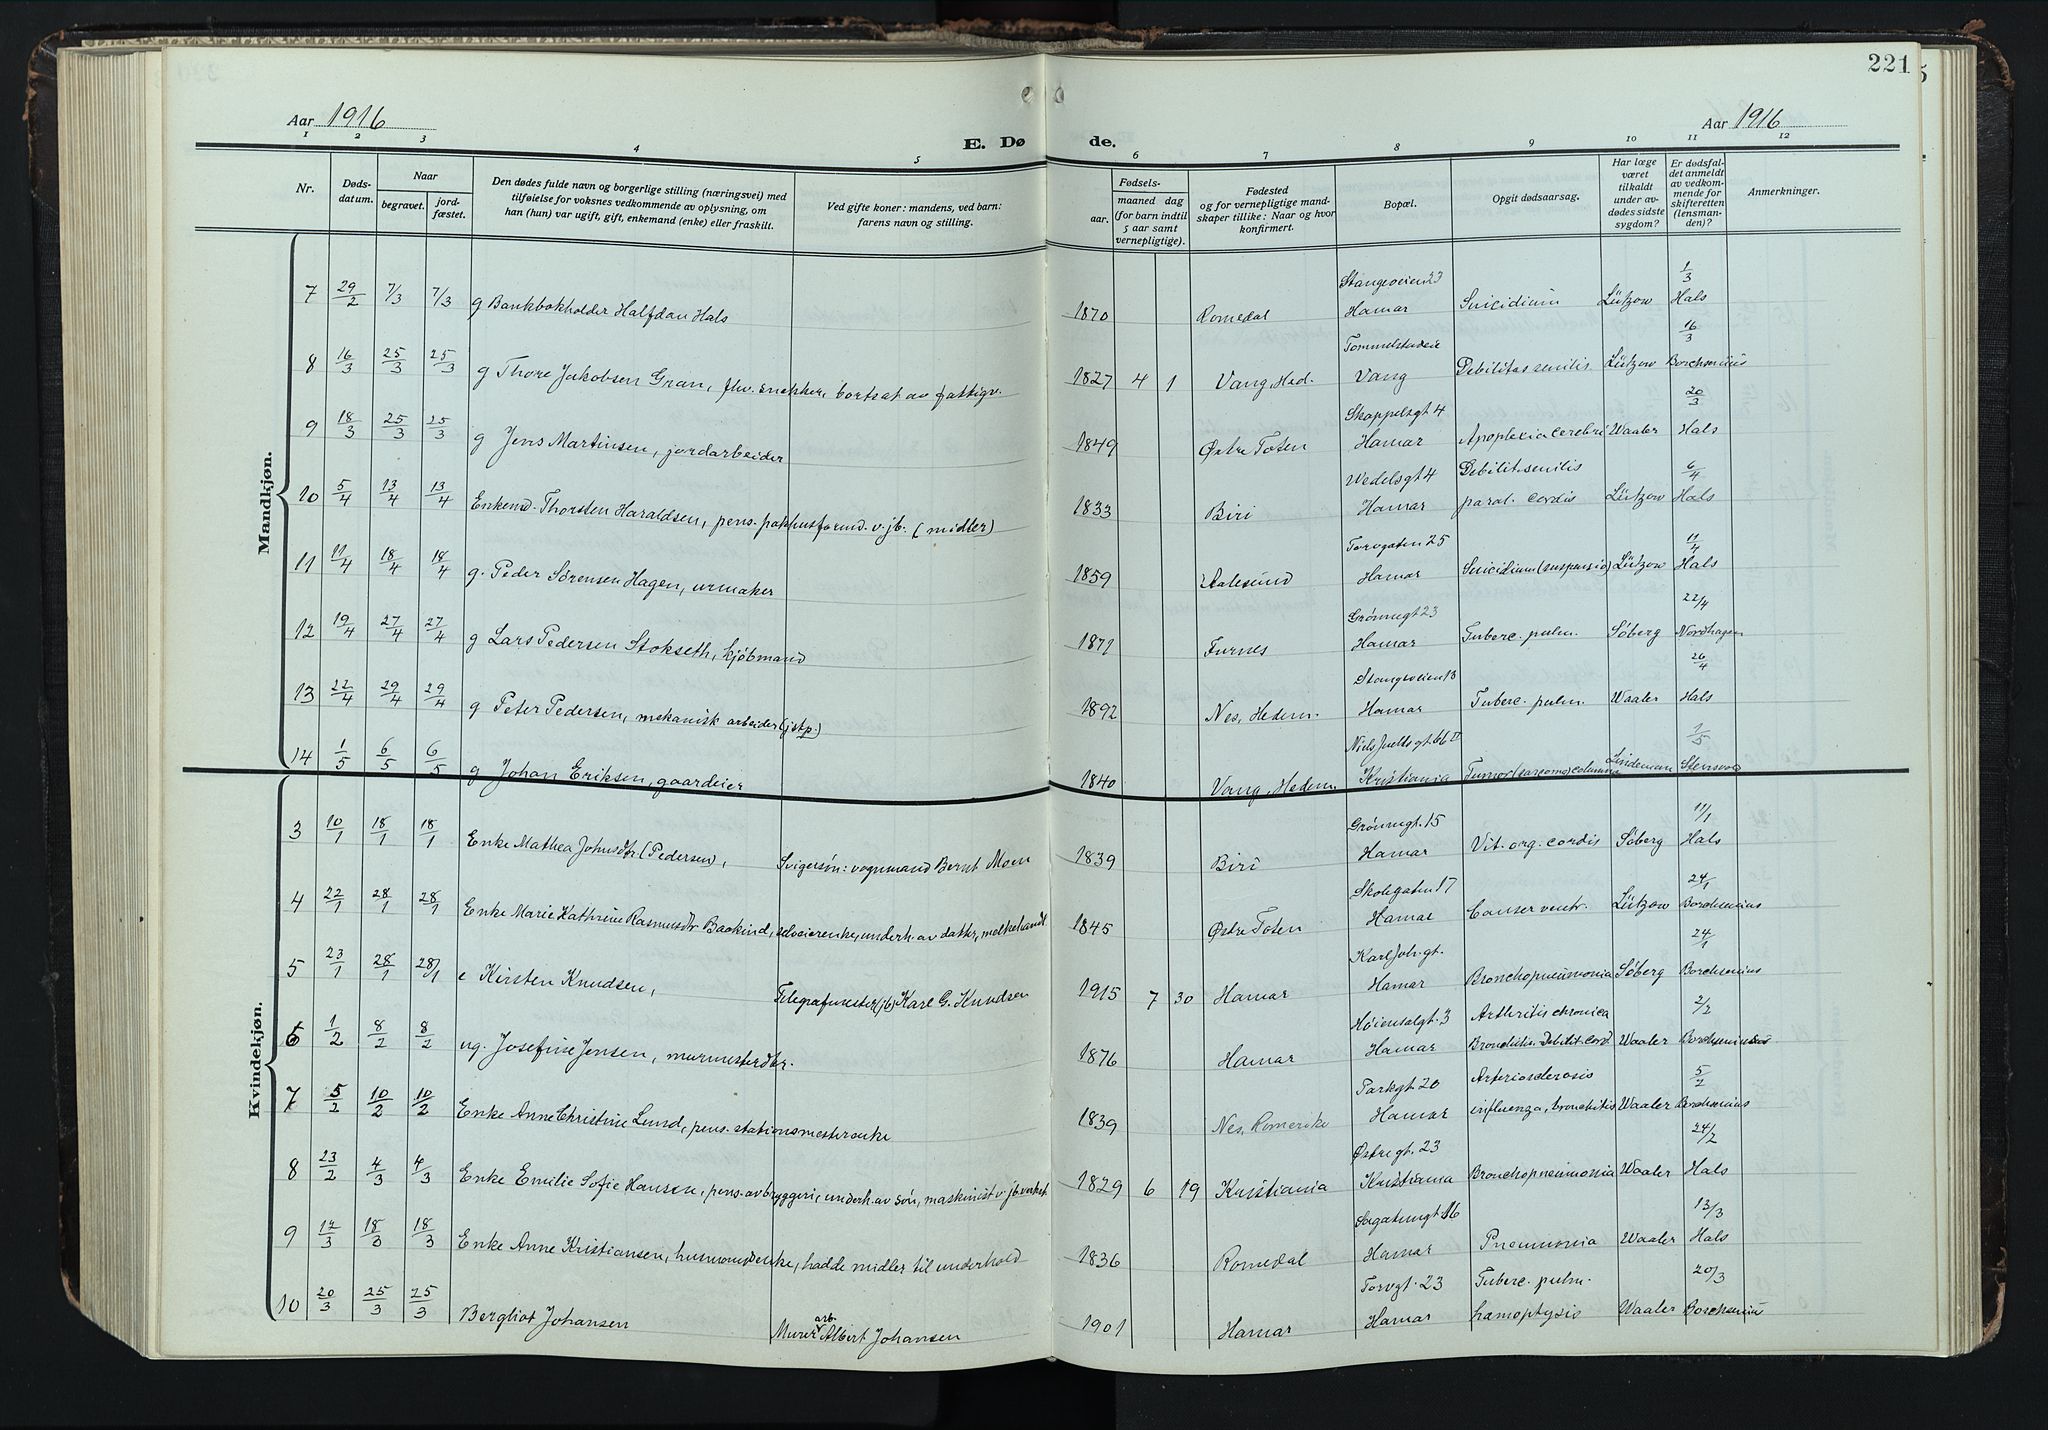 221
Aar 1916
Aar 1916
E. Dø de.
1 2 3 4 5 6 7 8 9 10 11 12
Nr.
Døds-
datum.
Naar
begravet.
jord-
fæstet.
Den dødes fulde navn og borgerlige stilling (næringsvei) med
tilføielse for voksnes vedkommende av oplysning, om
han (hun) var ugift, gift, enkemand (enke) eller fraskilt.
Ved gifte koner: mandens, ved barn:
farens navn og stilling.
Fødsels-
aar.
maaned dag
(for barn indtil
5 aar samt
vernepligtige).
Fødested
og for vernepligtige mand-
skaper tillike: Naar og hvor
konfirmert.
Bopæl.
Opgit dødsaarsag.
Har læge
været
tilkaldt
under av-
dødes sidste
sygdom?
Er dødsfal-
det anmeldt
av vedkom-
mende for
skifteretten
(lensman-
den)?
Anmerkninger.
Mandkjøn.
Stangeveien 23 1/3
7 29/2 7/3 7/3 g Bankbokholder Halfdan Hals 1870 Romedal Hamar Suicidium Lützow Hals
16/3
8 16/3 25/3 25/3 g Thore Jakobsen Gran, fhv. snekker, bortsat av fattigv. 1827 4 1 Vang, Hed. Vang Debilitas senilis Lützow Borchsenius
Skappelsgt 4 20/3
9 18/3 25/3 25/3 g Jens Martinsen, jordarbeider 1849 Østre Toten Hamar Apoplexia cerebri Waaler Hals
Wedelsgt 4 Debilit. senilis 6/4
10 5/4 13/4 13/4 Enkemd. Thorsten Haraldsen, pens. pakhusformd. v. jb. (midler) 1833 Biri Hamar paral. cordis Lützow Hals
Torvgaten 25 11/4
11 11/4 18/4 18/4 g. Peder Sørensen Hagen, urmaker 1859 Aalesund Hamar Suicidium (suspensio) Lützow Hals
Grønnegt 23 22/4
12 19/4 27/4 27/4 g Lars Pedersen Stokseth, kjøbmand 1871 Furnes Hamar Tuberc. pulm. Søberg Nordhagen
Stangeveien 13 26/4
13 22/4 29/4 29/4 g Peter Pedersen, mekanisk arbeider (jstp.) 1892 Nes, Hedem. Hamar Tuberc. pulm. Waaler Hals
Niels Juels gt. 66 II 2/5
14 1/5 6/5 6/5 g Johan Eriksen, gaardeier 1840 Vang, Hedem. Kristiania Tumor (sarcoma) Lindeman
Kvindekjøn.
Grønnegt. 15 11/1
3 10/1 18/1 18/1 Enke Mathea Johnsdtr (Pedersen), Svigersøn: vognmand Bernt Moen 1839 Biri Hamar Vit. org. cordis Søberg Hals
Skolegaten 17 24/1
4 22/1 28/1 28/1 Enke Marie Kathrine Rasmusdtr Baekind, selveierenke, underh. av dattr, melkehandl 1845 Østre Toten Hamar Cancer ventr. Lützow Borchsenius
Karl Joh. gt. 24/1
5 23/1 28/1 28/1 e Kirsten Knudsen, Telegrafmester (jb) Karl G. Knudsen 1915 7 30 Hamar Hamar Bronchopneumonia Søberg Borchsenius
Høiensalgt. 3 Arthritis chronica 2/2
6 1/2 8/2 8/2 ug. Josefine Jensen, murmesterdtr. 1876 Hamar Hamar Bronchitis. Debilit. cord Waaler Borchsenius
Parkgt. 20 Arteriosclerosis 5/2
7 5/2 10/2 10/2 Enke Anne Christine Lund, pens. stationsmesterenke 1839 Nes, Romerike Hamar influenza, bronchitis Waaler Borchsenius
Østregt. 23 24/2
8 23/2 4/3 4/3 Enke Emilie Sofie Hansen, pens. av bryggeri, underh. av søn, maskinist v. jb. verkst 1829 6 19 Kristiania Kristiania Bronchopneumonia Waaler Hals
13/3
9 12/3 18/3 18/3 Enke Anne Kristiansen, husmandsenke, hadde midler til underhold 1836 Romedal Hamar Pneumonia Waaler Hals
Torvgt. 23 Tuberc. pulm. 20/3
10 20/3 25/3 25/3 Bergliot Johansen Murerarb. Albert Johansen 1901 Hamar Hamar hæmoptysis Waaler Borchsenius